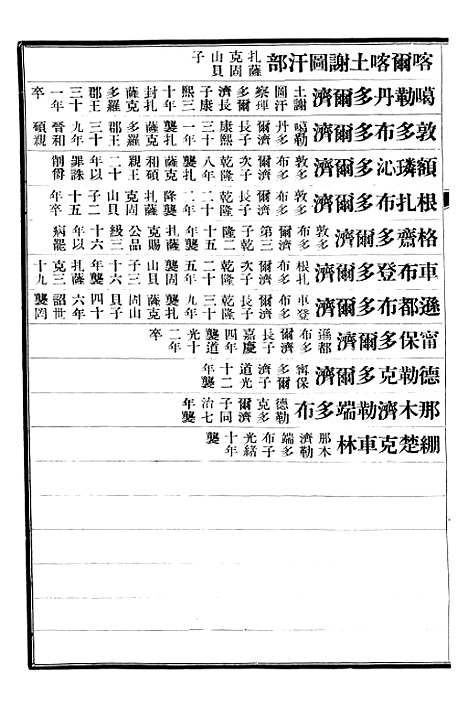 喀爾喀土謝圖汗部 扎薩克固山貝子
噶勒丹多爾濟 土謝圖汗察琿多爾濟長子康熙三十年封扎薩克多羅郡王三十一年卒
敦多布多爾濟 噶勒丹多爾濟長子康熙三十一年襲扎薩克多羅郡王三十九年晉和碩親
額璘沁多爾濟 敦多布多爾濟次子乾隆八年襲扎薩克和碩親王二十年以罪誅削爵
根扎布多爾濟 敦多布多爾濟次子乾隆二十二年降襲扎薩克固山貝子二十五年卒
格齋多爾濟 敦多布多爾濟第三子乾隆二十五年襲扎薩克賜公品級三十六年以病罷
車布登多爾濟 根扎布多爾濟次子乾隆二十五年襲固山貝子三十六年襲扎薩克三十九
遜都布多爾濟 車登布多爾濟長子乾隆三十九年襲扎薩克固山貝子四十六年詔世襲罔
甯保多爾濟 遜都布多爾濟長子嘉慶四年襲道光十二年卒
德勒克多爾濟 甯保多爾濟子道光十二年襲
那木濟勒端多布 德勒克多子同治七年襲
綳楚克車林 那木濟勒端多布子光緒十年襲